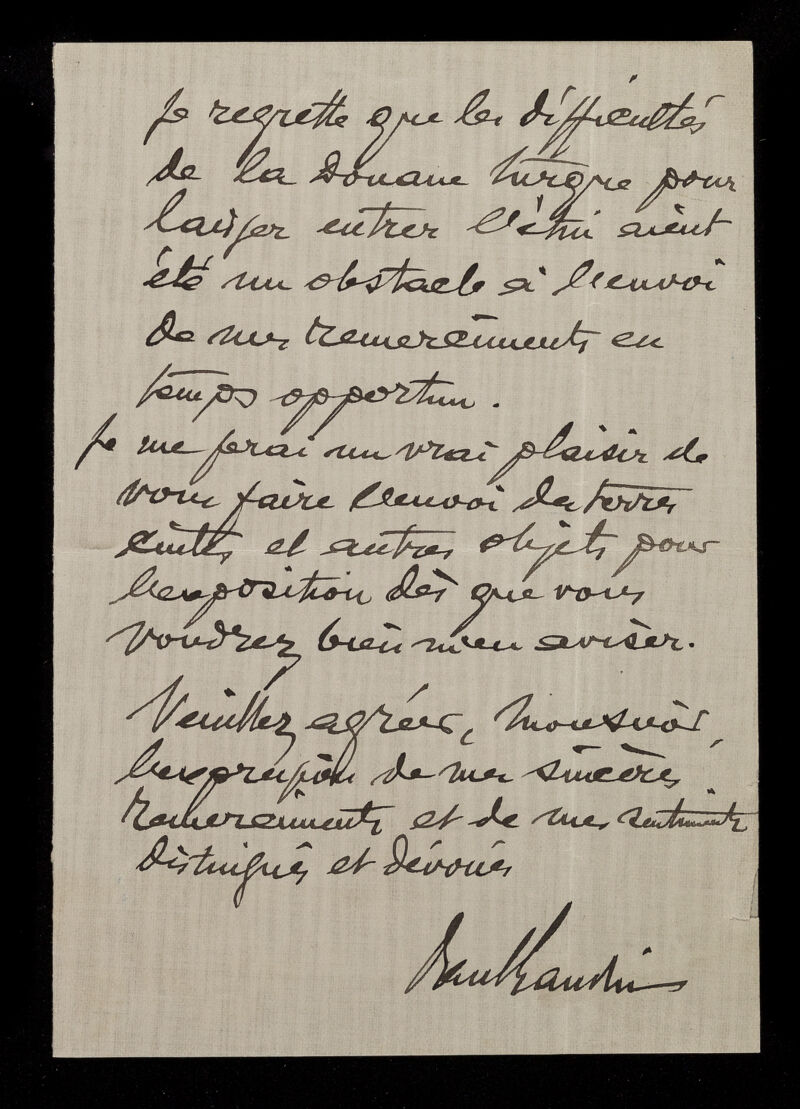 Je regrette que les difficultés
de la Douane turque pour
laisser entrer l'étui aient
été un obstacle à l'envoi
de mes remerciements en
temps opportun.
Je me ferai un vrai plaisir de
vous faire l'envoi des terres
cuites et autres objets pour
l'exposition dès que vous
voudrez bien m'en aviser.
Veuillez agréer, Monsieur,
l'expression de mes sincères
remerciements et de mes sentiments
distingués et dévoués
Paul Gaudin